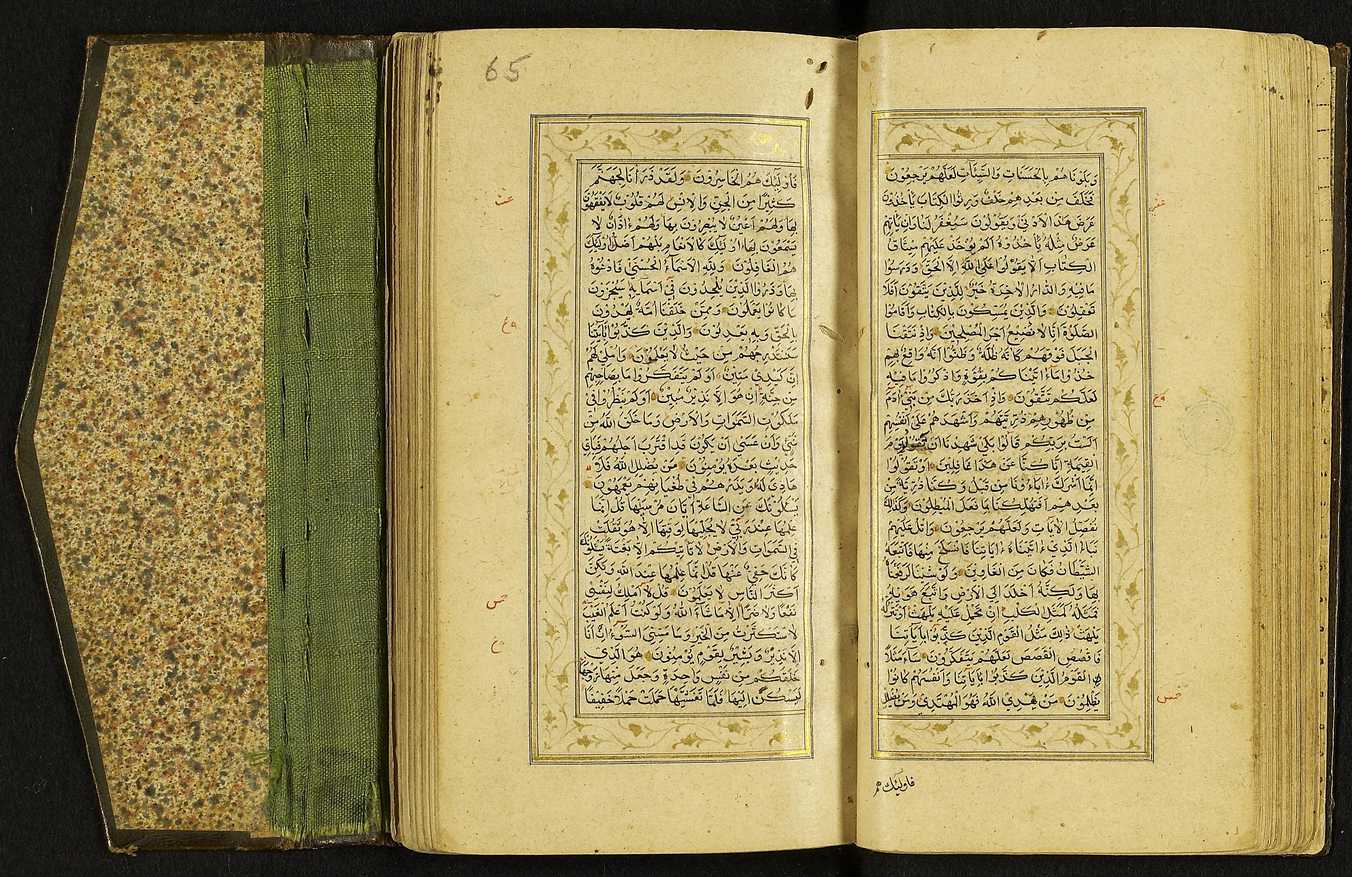 وَبَلَوْنَاهُمْ بِالْحَسَنَاتِ وَالسَّيِّئَاتِ لَعَلَّهُمْ يَرْجِعُونَ
فَخَلَفَ مِنْ بَعْدِهِمْ خَلْفٌ وَرِثُوا الْكِتَابَ يَأْخُذُونَ
عَرَضَ هٰذَا الْاَدْنٰى وَيَقُولُونَ سَيُغْفَرُ لَنَا وَاِنْ يَأْتِهِمْ
عَرَضٌ مِثْلُهُ يَأْخُذُوهُ اَلَمْ يُؤْخَذْ عَلَيْهِمْ مِيثَاقُ
الْكِتَابِ اَنْ لَا يَقُولُوا عَلَى اللّٰهِ اِلَّا الْحَقَّ وَدَرَسُوا
مَا فِيهِ وَالدَّارُ الْاٰخِرَةُ خَيْرٌ لِلَّذِينَ يَتَّقُونَ اَفَلَا
تَعْقِلُونَ وَالَّذِينَ يُمَسِّكُونَ بِالْكِتَابِ وَاَقَامُوا
الصَّلٰوةَ اِنَّا لَا نُضِيعُ اَجْرَ الْمُصْلِحِينَ وَاِذْ نَتَقْنَا
الْجَبَلَ فَوْقَهُمْ كَاَنَّهُ ظُلَّةٌ وَظَنُّوا اَنَّهُ وَاقِعٌ بِهِمْ
خُذُوا مَا اٰتَيْنَاكُمْ بِقُوَّةٍ وَاذْكُرُوا مَا فِيهِ
لَعَلَّكُمْ تَتَّقُونَ وَاِذْ اَخَذَ رَبُّكَ مِنْ بَنِي اٰدَمَ
مِنْ ظُهُورِهِمْ ذُرِّيَّتَهُمْ وَاَشْهَدَهُمْ عَلٰى اَنْفُسِهِمْ
اَلَسْتُ بِرَبِّكُمْ قَالُوا بَلٰى شَهِدْنَا اَنْ تَقُولُوا يَوْمَ
الْقِيٰمَةِ اِنَّا كُنَّا عَنْ هٰذَا غَافِلِينَ اَوْ تَقُولُوا
اِنَّمَا اَشْرَكَ اٰبَاؤُنَا مِنْ قَبْلُ وَكُنَّا ذُرِّيَّةً مِنْ
بَعْدِهِمْ اَفَتُهْلِكُنَا بِمَا فَعَلَ الْمُبْطِلُونَ وَكَذٰلِكَ
نُفَصِّلُ الْاٰيَاتِ وَلَعَلَّهُمْ يَرْجِعُونَ وَاتْلُ عَلَيْهِمْ
نَبَأَ الَّذِي اٰتَيْنَاهُ اٰيَاتِنَا فَانْسَلَخَ مِنْهَا فَاَتْبَعَهُ
الشَّيْطَانُ فَكَانَ مِنَ الْغَاوِينَ وَلَوْ شِئْنَا لَرَفَعْنَاهُ
بِهَا وَلٰكِنَّهُ اَخْلَدَ اِلَى الْاَرْضِ وَاتَّبَعَ هَوٰيهُ
فَمَثَلُهُ كَمَثَلِ الْكَلْبِ اِنْ تَحْمِلْ عَلَيْهِ يَلْهَثْ اَوْ تَتْرُكْهُ
يَلْهَثْ ذٰلِكَ مَثَلُ الْقَوْمِ الَّذِينَ كَذَّبُوا بِاٰيَاتِنَا
فَاقْصُصِ الْقَصَصَ لَعَلَّهُمْ يَتَفَكَّرُونَ سَاءَ مَثَلًا
الْقَوْمُ الَّذِينَ كَذَّبُوا بِاٰيَاتِنَا وَاَنْفُسَهُمْ كَانُوا
يَظْلِمُونَ مَنْ يَهْدِي اللّٰهُ فَهُوَ الْمُهْتَدِي وَمَنْ يُضْلِلْ
فاولئك هم
65
فَاُولٰئِكَ هُمُ الْخَاسِرُونَ وَلَقَدْ ذَرَأْنَا لِجَهَنَّمَ
كَثِيرًا مِنَ الْجِنِّ وَالْاِنْسِ لَهُمْ قُلُوبٌ لَا يَفْقَهُونَ
بِهَا وَلَهُمْ اَعْيُنٌ لَا يُبْصِرُونَ بِهَا وَلَهُمْ اٰذَانٌ لَا
يَسْمَعُونَ بِهَا اُولٰئِكَ كَالْاَنْعَامِ بَلْ هُمْ اَضَلُّ اُولٰئِكَ
هُمُ الْغَافِلُونَ وَلِلّٰهِ الْاَسْمَاءُ الْحُسْنٰى فَادْعُوهُ
بِهَا وَذَرُوا الَّذِينَ يُلْحِدُونَ فِي اَسْمَائِهِ سَيُجْزَوْنَ
مَا كَانُوا يَعْمَلُونَ وَمِمَّنْ خَلَقْنَا اُمَّةٌ يَهْدُونَ
بِالْحَقِّ وَبِهِ يَعْدِلُونَ وَالَّذِينَ كَذَّبُوا بِاٰيَاتِنَا
سَنَسْتَدْرِجُهُمْ مِنْ حَيْثُ لَا يَعْلَمُونَ وَاُمْلِي لَهُمْ
اِنَّ كَيْدِي مَتِينٌ اَوَلَمْ يَتَفَكَّرُوا مَا بِصَاحِبِهِمْ
مِنْ جِنَّةٍ اِنْ هُوَ اِلَّا نَذِيرٌ مُبِينٌ اَوَلَمْ يَنْظُرُوا فِي
مَلَكُوتِ السَّمٰوَاتِ وَالْاَرْضِ وَمَا خَلَقَ اللّٰهُ مِنْ
شَيْءٍ وَاَنْ عَسٰى اَنْ يَكُونَ قَدِ اقْتَرَبَ اَجَلُهُمْ فَبِاَيِّ
حَدِيثٍ بَعْدَهُ يُؤْمِنُونَ مَنْ يُضْلِلِ اللّٰهُ فَلَا
هَادِيَ لَهُ وَيَذَرُهُمْ فِي طُغْيَانِهِمْ يَعْمَهُونَ
يَسْـَٔلُونَكَ عَنِ السَّاعَةِ اَيَّانَ مُرْسٰيهَا قُلْ اِنَّمَا
عِلْمُهَا عِنْدَ رَبِّي لَا يُجَلِّيهَا لِوَقْتِهَا اِلَّا هُوَ ثَقُلَتْ
فِي السَّمٰوَاتِ وَالْاَرْضِ لَا تَأْتِيكُمْ اِلَّا بَغْتَةً يَسْـَٔلُونَكَ
كَاَنَّكَ حَفِيٌّ عَنْهَا قُلْ اِنَّمَا عِلْمُهَا عِنْدَ اللّٰهِ وَلٰكِنَّ
اَكْثَرَ النَّاسِ لَا يَعْلَمُونَ قُلْ لَا اَمْلِكُ لِنَفْسِي
نَفْعًا وَلَا ضَرًّا اِلَّا مَا شَاءَ اللّٰهُ وَلَوْ كُنْتُ اَعْلَمُ الْغَيْبَ
لَاسْتَكْثَرْتُ مِنَ الْخَيْرِ وَمَا مَسَّنِيَ السُّوءُ اِنْ اَنَا
اِلَّا نَذِيرٌ وَبَشِيرٌ لِقَوْمٍ يُؤْمِنُونَ هُوَ الَّذِي
خَلَقَكُمْ مِنْ نَفْسٍ وَاحِدَةٍ وَجَعَلَ مِنْهَا زَوْجَهَا
لِيَسْكُنَ اِلَيْهَا فَلَمَّا تَغَشّٰيهَا حَمَلَتْ حَمْلًا خَفِيفًا